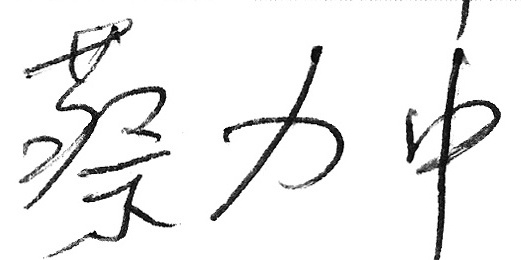 蔡力中